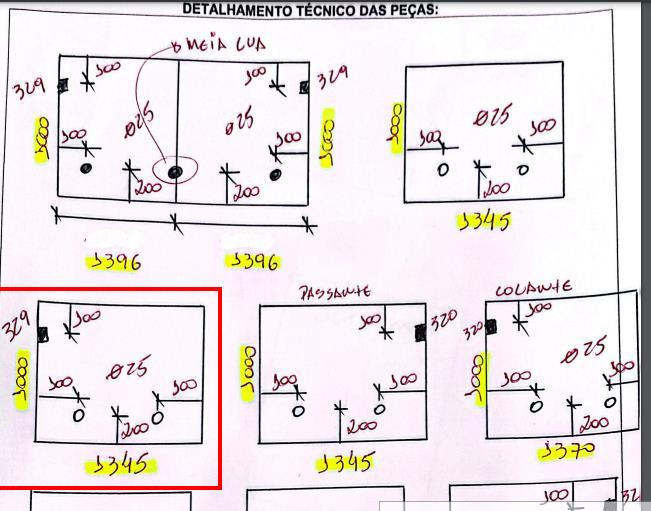 DETALHAMENTO TÉCNICO DAS PEÇAS:
MEIA LUA
329
100
100
329
1000
100
Ø25
Ø25
100
1000
200
200
1396
1396
1000
100
Ø25
100
200
1345
329
100
1000
100
Ø25
100
200
1345
PASSANTE
100
320
1000
100
100
200
1345
COLANTE
320
100
1000
100
Ø25
100
200
1370
100
32